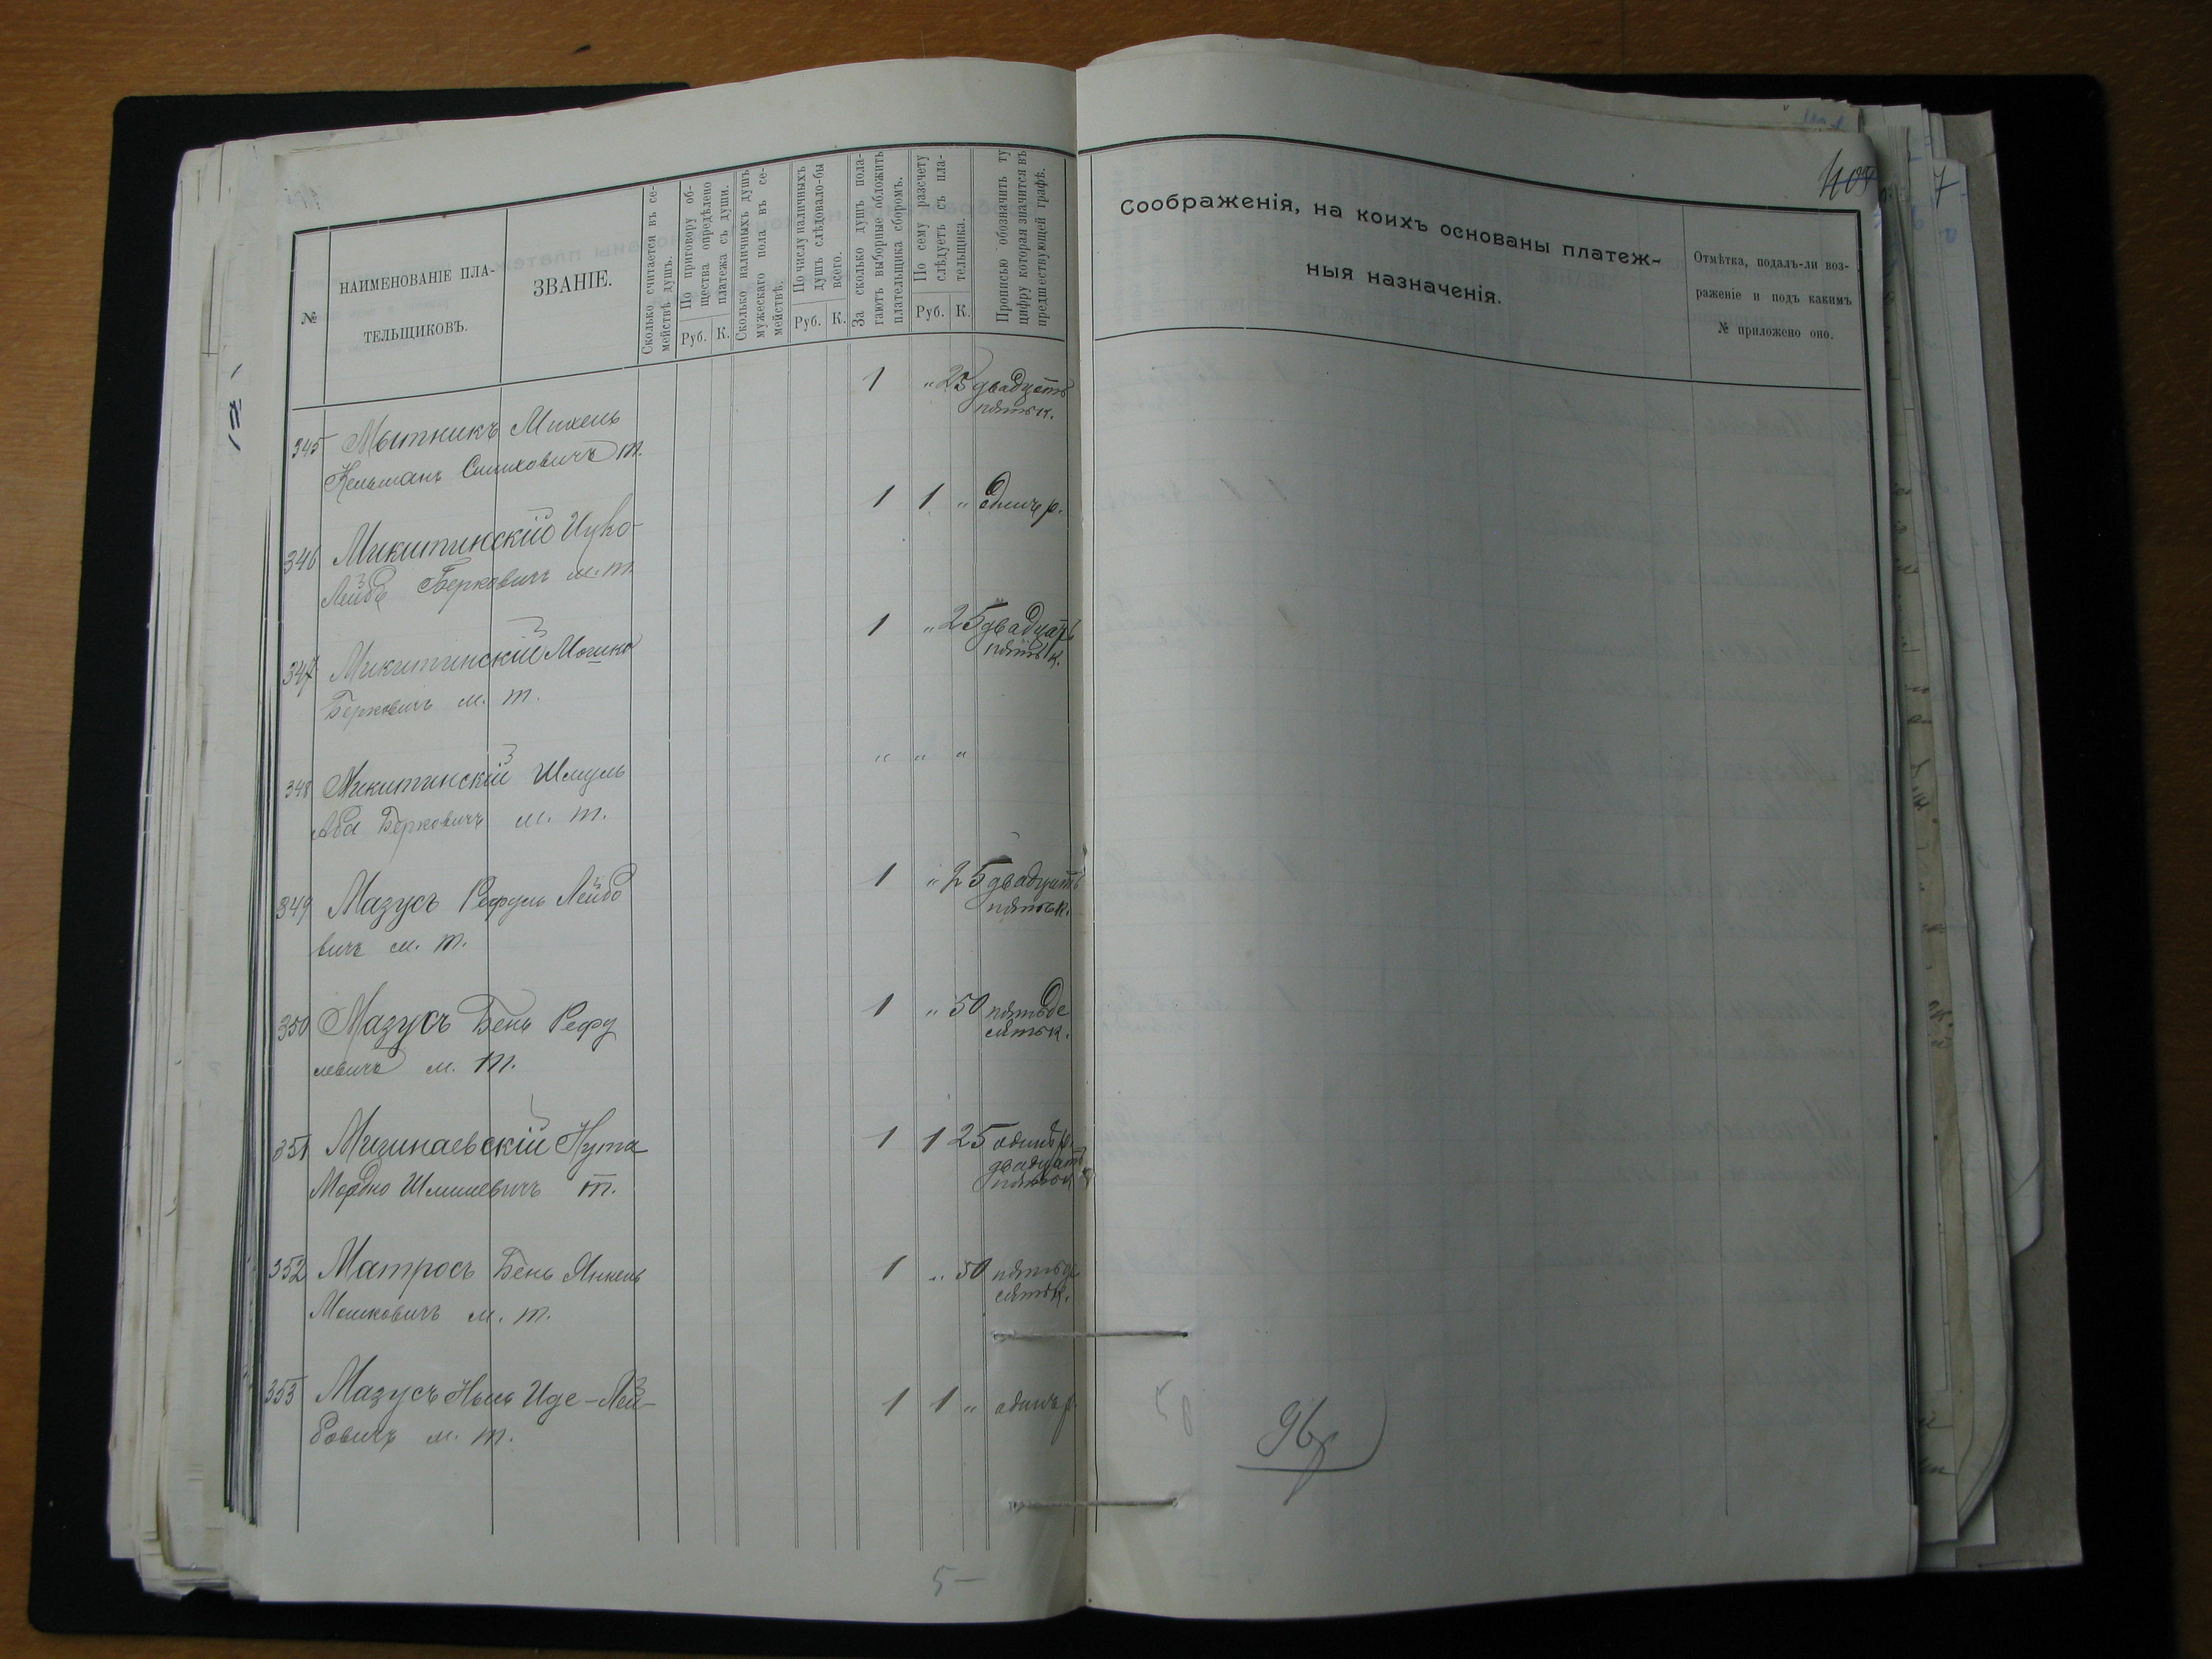 №
НАИМЕНОВАНІЕ ПЛА-
ТЕЛЬЩИКОВЪ.
ЗВАНІЕ.
Сколько считается въ се-
мействѣ душъ.
По приговору об-
щества опредѣлено
платежа съ души.
Руб. К.
Сколько наличныхъ душъ
мужескаго пола въ се-
мействѣ.
По числу наличныхъ
душъ слѣдовало-бы
всего.
Руб. К.
За сколько душъ пола-
гаютъ выборные обложить
плательщика сборомъ.
По сему разсчету
слѣдуетъ съ пла-
тельщика.
Руб. К.
Прописью обозначить ту
цифру которая значится въ
предшествующей графѣ.
345 Мытникъ Михель 1 " 25 двадцать
пять к.
Кельманъ т.
346 Микитинскій Ицко 1 1 " Одинъ р.
Лейбъ Берковичъ м. т.
347 Микитинскій Мошко 1 " 25 двадцать
пять к.
Берковичъ м. т.
348 Микитинскій Шмуль " " "
Аба Берковичъ м. т.
349 Мазусъ Рефуль Лейбо 1 " 25 двадцать
пять к.
вичъ м. т.
350 Мазусъ Бень Рефу 1 " 50 пятьде
сять к.
левичъ м. т.
351 Нута 1 1 25 одинъ р.
двадцать
пять к
Мордко т.
352 Матросъ Бень Янкель 1 " 50 пятьде
сять к.
Мошковичъ м. т.
353 Мазусъ Иде-Лей- 1 1 " одинъ р.
бовичъ м. т.
5 —
Соображенія, на коихъ основаны платеж-
ныя назначенія.
Отмѣтка, подалъ-ли воз-
раженіе и подъ какимъ
№ приложено оно.
96